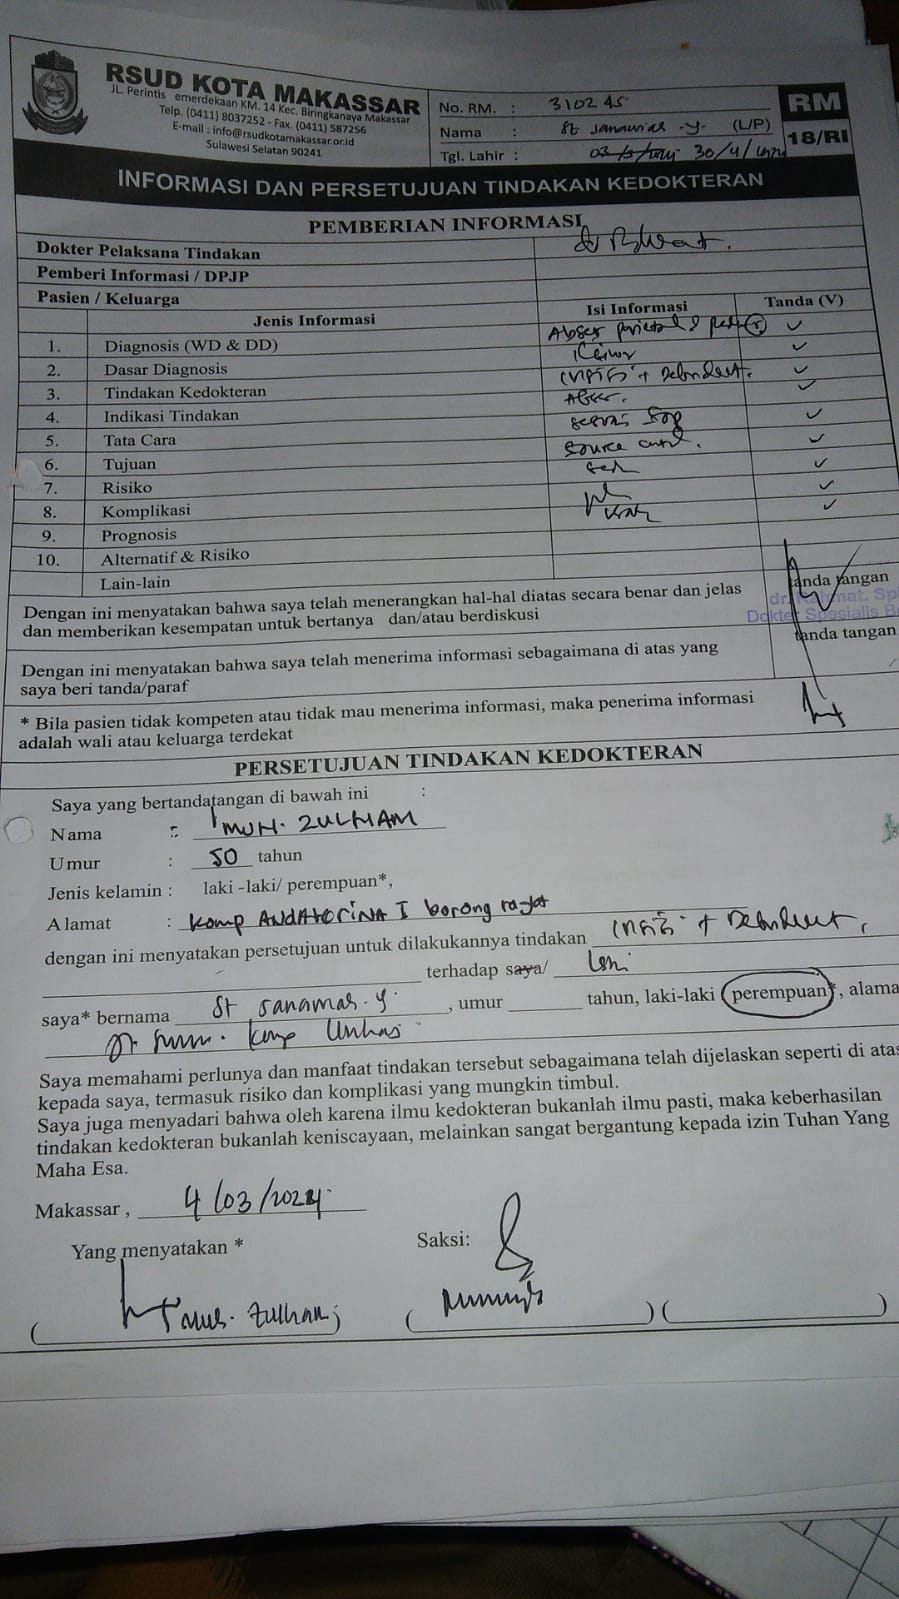 RSUD KOTA MAKASSAR
JL. Perintis emerdekaan KM. 14 Kec. Biringkanaya Makassar
Telp. (0411) 8037252 - Fax. (0411) 587256
E-mail : info@rsudkotamakassar.or.id
Sulawesi Selatan 90241
No. RM. : 310245
Nama : St (L/P)
Tgl. Lahir : 30/4/
RM
18/RI
INFORMASI DAN PERSETUJUAN TINDAKAN KEDOKTERAN
PEMBERIAN INFORMASI
Dokter Pelaksana Tindakan dr
Pemberi Informasi / DPJP
Pasien / Keluarga
Jenis Informasi Isi Informasi Tanda (V)
1. Diagnosis (WD & DD) Abses parietal ✓
2. Dasar Diagnosis ✓
3. Tindakan Kedokteran ✓
4. Indikasi Tindakan ✓
5. Tata Cara sesuai SOP ✓
6. Tujuan source ✓
7. Risiko ✓
8. Komplikasi ✓
9. Prognosis ✓
10. Alternatif & Risiko
Lain-lain
Dengan ini menyatakan bahwa saya telah menerangkan hal-hal diatas secara benar dan jelas
dan memberikan kesempatan untuk bertanya dan/atau berdiskusi
tanda tangan
dr. Rahmat. Sp
Dokter Spesialis B
Dengan ini menyatakan bahwa saya telah menerima informasi sebagaimana di atas yang
saya beri tanda/paraf
tanda tangan
* Bila pasien tidak kompeten atau tidak mau menerima informasi, maka penerima informasi
adalah wali atau keluarga terdekat
PERSETUJUAN TINDAKAN KEDOKTERAN
Saya yang bertandatangan di bawah ini :
Nama : MUH. ZULHAM
Umur : 50 tahun
Jenis kelamin : laki -laki/ perempuan*,
Alamat : Komp I borong
dengan ini menyatakan persetujuan untuk dilakukannya tindakan
terhadap saya/
saya* bernama St , umur tahun, laki-laki perempuan*, alama
Komp Unhas
Saya memahami perlunya dan manfaat tindakan tersebut sebagaimana telah dijelaskan seperti di atas
kepada saya, termasuk risiko dan komplikasi yang mungkin timbul.
Saya juga menyadari bahwa oleh karena ilmu kedokteran bukanlah ilmu pasti, maka keberhasilan
tindakan kedokteran bukanlah keniscayaan, melainkan sangat bergantung kepada izin Tuhan Yang
Maha Esa.
Makassar , 4/03/2024
Yang menyatakan * Saksi:
( Zulham ) ( ) ( )